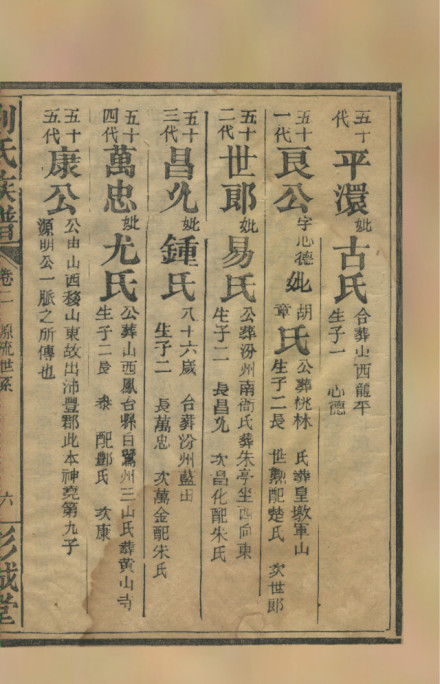 五十代 平澴 妣 古氏 合葬山西龍平
生子一 心德
五十一代 良公 字心德 妣 胡章氏 公葬桃林 氏葬皇墩軍山
生子二 長世勲配楚氏 次世郎
五十二代 世郎 妣 易氏 公葬汾州南衙氏葬朱亭坐西向東
生子二 長昌允 次昌化配朱氏
五十三代 昌允 妣 鍾氏 八十六歲 合葬汾州藍田
生子二 長萬忠 次萬金配朱氏
五十四代 萬忠 妣 尤氏 公葬山西鳳台縣白鷺州三山氏葬黃山寺
生子二長 泰 配酆氏 次康
五十五代 康公 公由山西務山東故出沛豐郡此本神堯第九子
源明公一脈之所傳也
劉氏族譜 卷二 源流世系 六 彭城堂